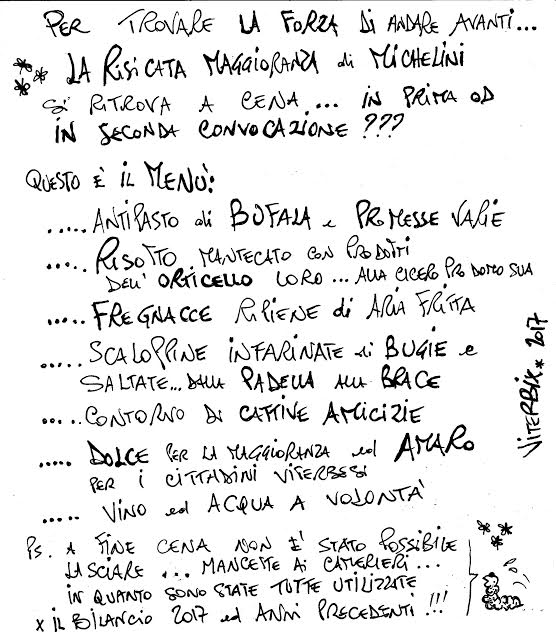 PER TROVARE LA FORZA DI ANDARE AVANTI...
LA RISICATA MAGGIORANZA di MICHELINI
SI RITROVA A CENA... IN PRIMA OD
IN SECONDA CONVOCAZIONE ???
QUESTO È IL MENÙ:
..... ANTIPASTO di BUFALA e PROMESSE VARIE
..... RISOTTO MANTECATO CON PRODOTTI
DELL' ORTICELLO LORO... ALLA CICERO PRO DOMO SUA
..... FREGNACCE RIPIENE di ARIA FRITTA
..... SCALOPPINE INFARINATE di BUGIE e
SALTATE... DALLA PADELLA ALLA BRACE
..... CONTORNO DI CATTIVE AMICIZIE
..... DOLCE PER LA MAGGIORANZA ed AMARO
PER I CITTADINI VITERBESI
..... VINO ed ACQUA A VOLONTÀ
Ps. A FINE CENA NON È STATO POSSIBILE
LASCIARE ... MANCETTE AI CAMERIERI...
IN QUANTO SONO STATE TUTTE UTILIZZATE
x IL BILANCIO 2017 ed ANNI PRECEDENTI !!!
VITERBIX * 2017